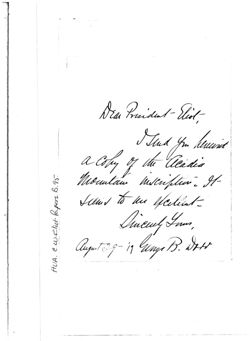 Dear President Eliot,
I send you herewith
a copy of the Acadia
Mountain inscription. It
seems to me excellent.
Sincerely Yours,
August 29 - 19 George B. Dorr
HUA. C.W. Eliot Papers B. 95